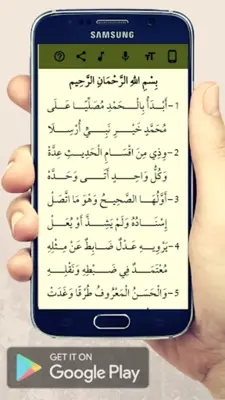 SAMSUNG
بِسْمِ اللهِ الرَّحْمَانِ الرَّحِيمِ
1- أَبْدَأُ بِالْحَمْدِ مُصَلِّيًا عَلَى
مُحَمَّدٍ خَيْرِ نَبِيٍّ أُرْسِلَا
2- وَذِي مِنَ اقْسَامِ الْحَدِيثِ عِدَّهْ
وَكُلُّ وَاحِدٍ أَتَى وَحَدَّهْ
3- أَوَّلُهَا الصَّحِيحُ وَهُوَ مَا اتَّصَلْ
إِسْنَادُهُ وَلَمْ يَشُذَّ أَوْ يُعَلْ
4- يَرْوِيهِ عَدْلٌ ضَابِطٌ عَنْ مِثْلِهِ
مُعْتَمَدٌ فِي ضَبْطِهِ وَنَقْلِهِ
5- وَالْحَسَنُ الْمَعْرُوفُ طُرْقًا وَغَدَتْ
GET IT ON
Google Play